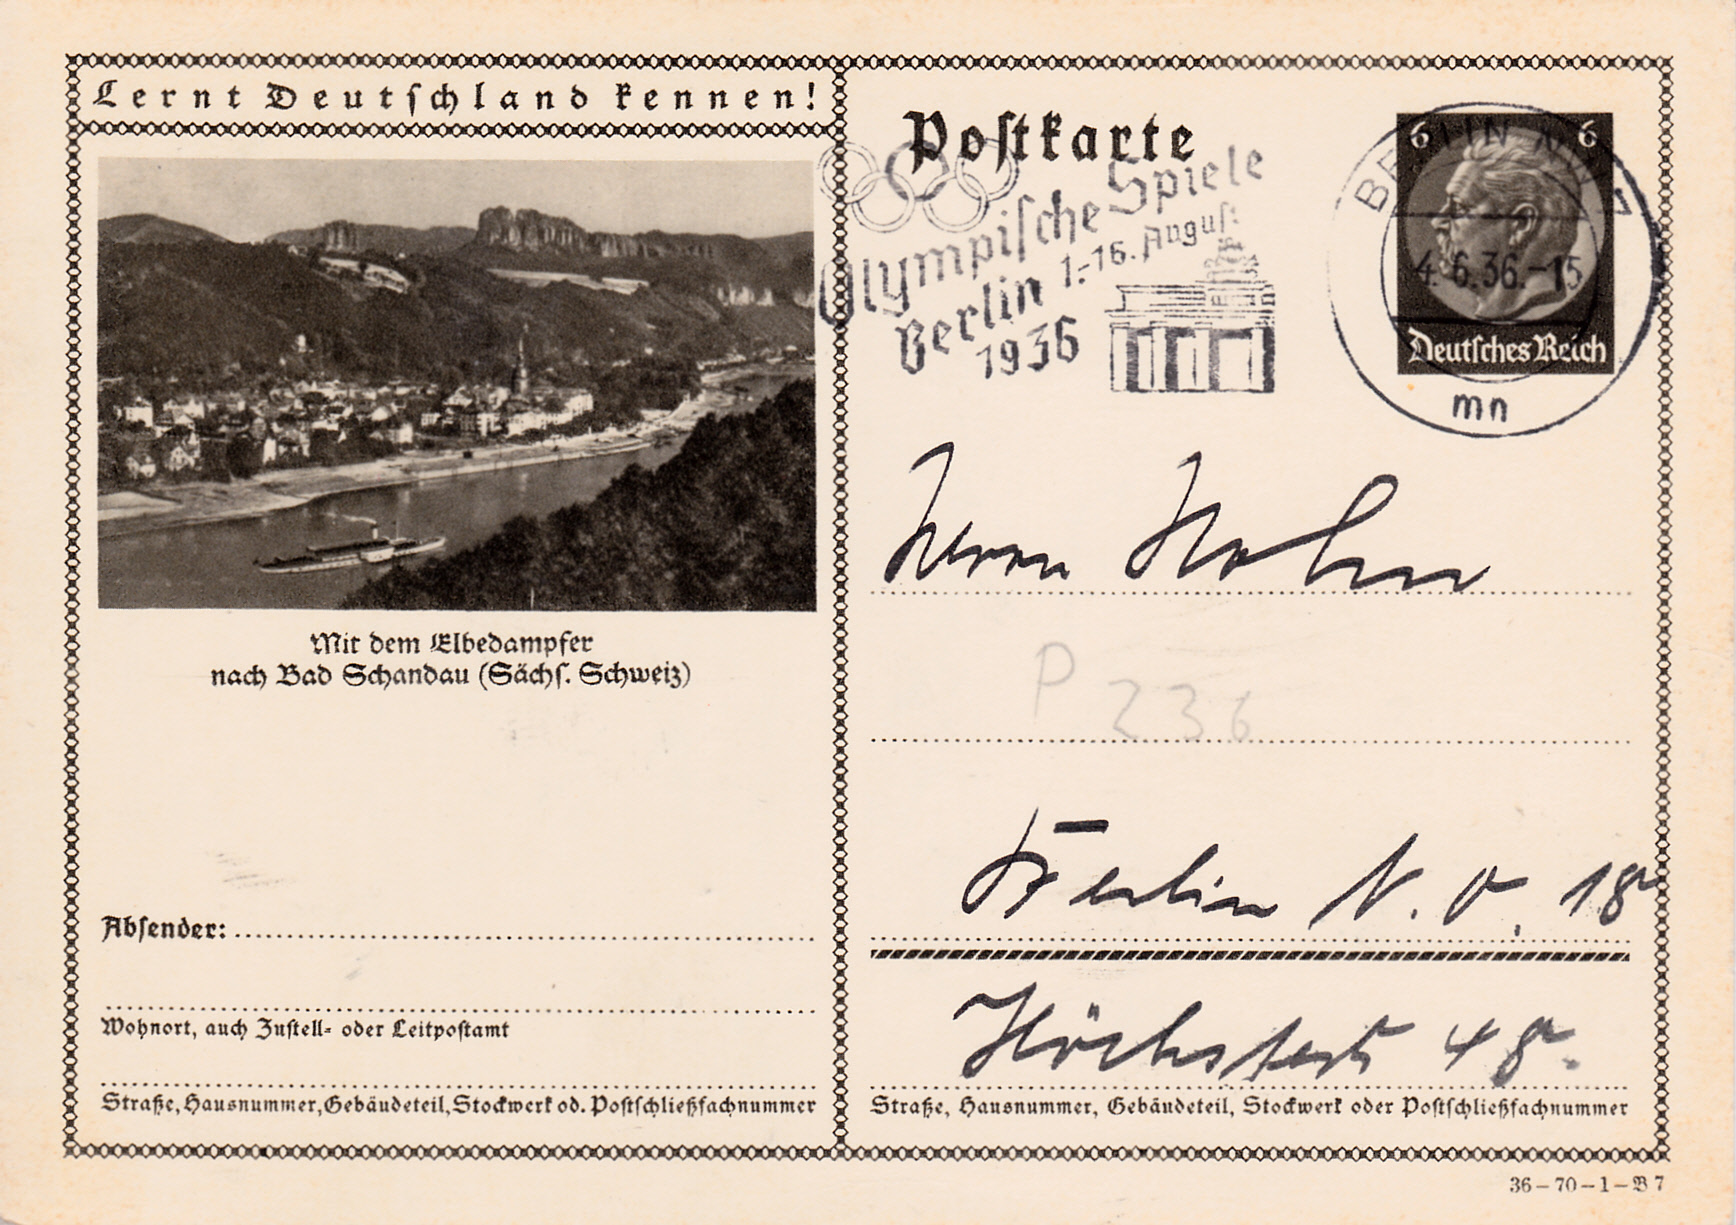 Lernt Deutschland kennen!
Mit dem Elbedampfer
nach Bad Schandau (Sächs. Schweiz)
Absender:
Wohnort, auch Zustell- oder Leitpostamt
Straße, Hausnummer, Gebäudeteil, Stockwerk od. Postschließfachnummer
Postkarte
Olympische Spiele
Berlin 1.-16. August
1936
6 6
Deutsches Reich
BERLIN NW 7
4.6.36.-15
mn
Herrn
P 236
Berlin N.O. 18
Höchstestr 48.
Straße, Hausnummer, Gebäudeteil, Stockwerk oder Postschließfachnummer
36-70-1-B7